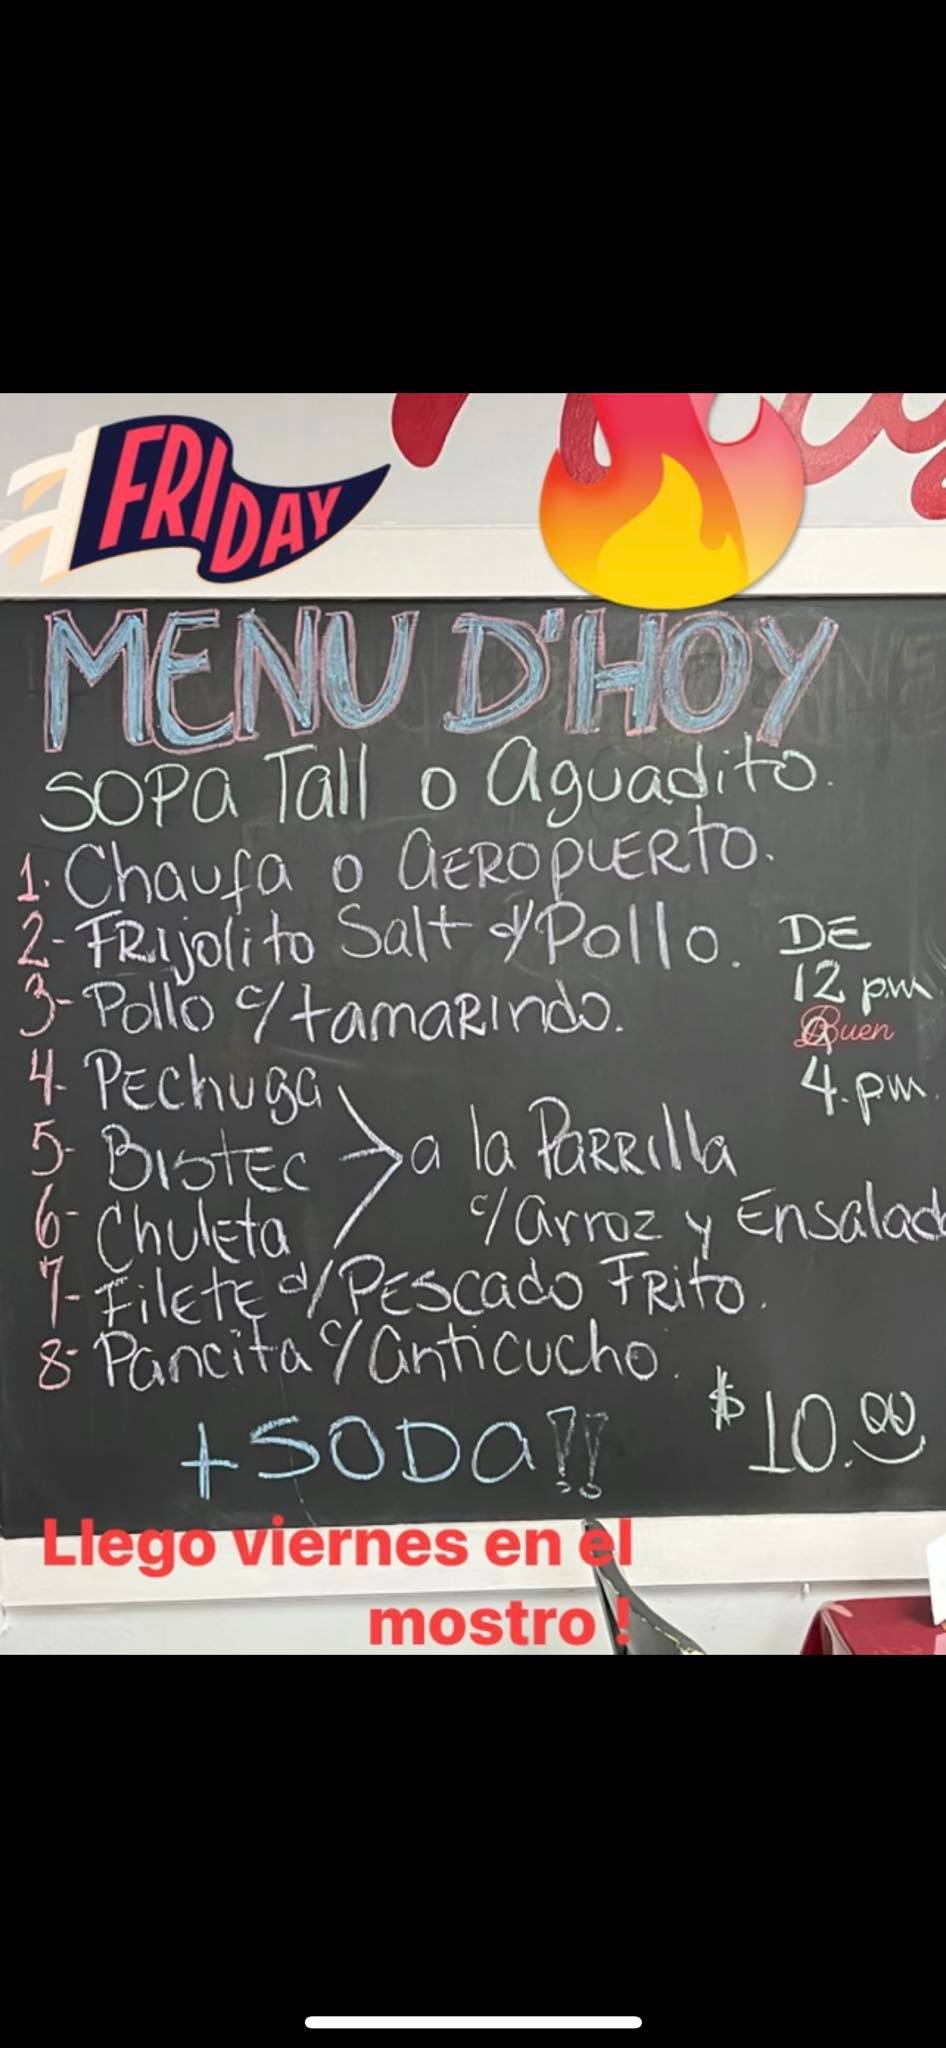 FRIDAY
MENU D'HOY
SOPA Tall o Aguadito.
1. Chaufa o AEROPUERTO.
2- FRijolito Salt d/Pollo.
3- Pollo c/tamaRindo.
DE
12 pm
a
Buen
4. pm.
4- PEchuga
5- BistEc
6- Chuleta
> a la PaRRilla
c/arroz y Ensalad
7- FilEtE d/PEscado FRito.
8- Pancita c/anticucho.
+SODa!!
$10.00
Llego viernes en el
mostro !